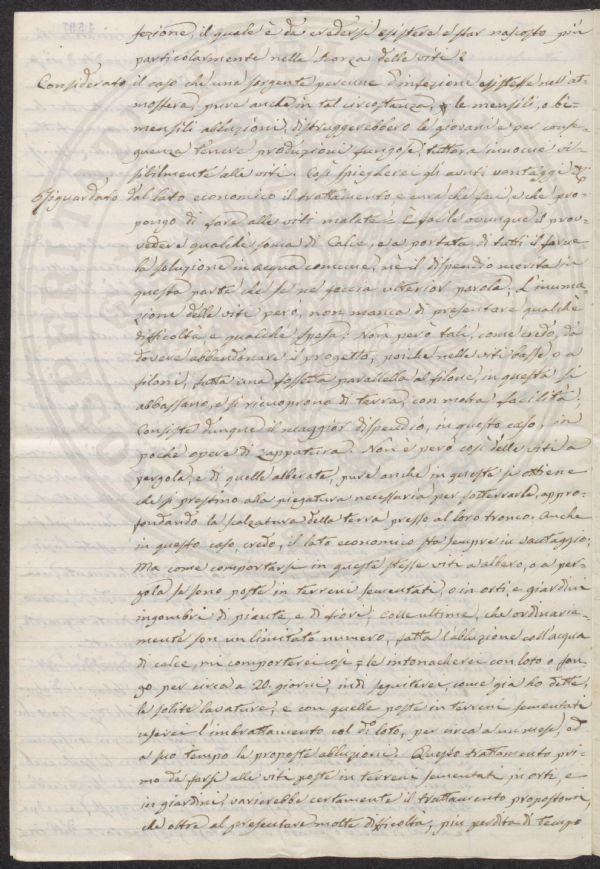 fezione, il quale è da credersi esistere e star nascosto più
particolarmente nella scorza delle viti.
Considerato il caso che una sorgente perenne d'infezione esistesse nell'at-
mosfera, pure anche in tal circostanza, le mensili, o bi-
mensili abluzioni, distruggerebbero le giovani e per conse-
guenza tenere produzioni fungose, tuttora innocue vi-
sibilmente alle viti. Così spiegherei gli avuti vantaggi.
Risguardato dal lato economico il trattamento e cura che feci, e che pro-
pongo di fare alle viti malate: È facile ovunque il prov-
vedere qualche soma di Calce, ed a portata di tutti il farne
la soluzione in acqua comune, nè il dispendio merita in
questa parte che se ne faccia ulterior parola. L'inuma-
zione delle viti però, non manca di presentare qualche
difficoltà, e qualche spesa; Non però tale, come credo, da
dovere abbandonare il progetto, poichè nelle viti basse, o a
filoni, fatta una fossetta parallella al filone, in questa si
abbassano, e si ricuoprono di terra, con molta facilità.
Consiste dunque il maggior dispendio, in questo caso, in
poche opere di zappatura. Non è però così delle viti a
pergola, e di quelle alberate, pure anche in queste si ottiene
che si prestino alla piegatura necessaria per sotterrarle, appro-
fondando la scalzatura della terra presso al loro tronco. Anche
in questo caso, credo, il lato economico sta sempre in vantaggio;
Ma come comportarsi in queste stesse viti a albero, o a per-
gola se sono poste in terreni sementati, o in orti, e giardini
ingombri di piante, e di fiori, colle ultime, che ordinaria-
mente son un limitato numero, fatta l'abluzione coll'acqua
di calce, mi comporterei così = le intonacherei con loto o fan-
go per circa a 20 giorni, indi seguiterei, come già ho detto,
le solite lavature, e con quelle poste in terreni sementati
userei l'imbrattamento col do loto, per circa a un mese, ed
a suo tempo le proposte abluzioni. Questo trattamento pri-
mo da farsi alle viti poste in terreni sementati, in orti, e
in giardini, varierebbe certamente il trattamento propostomi,
che oltre al presentare molte difficoltà, più perdita di tempo